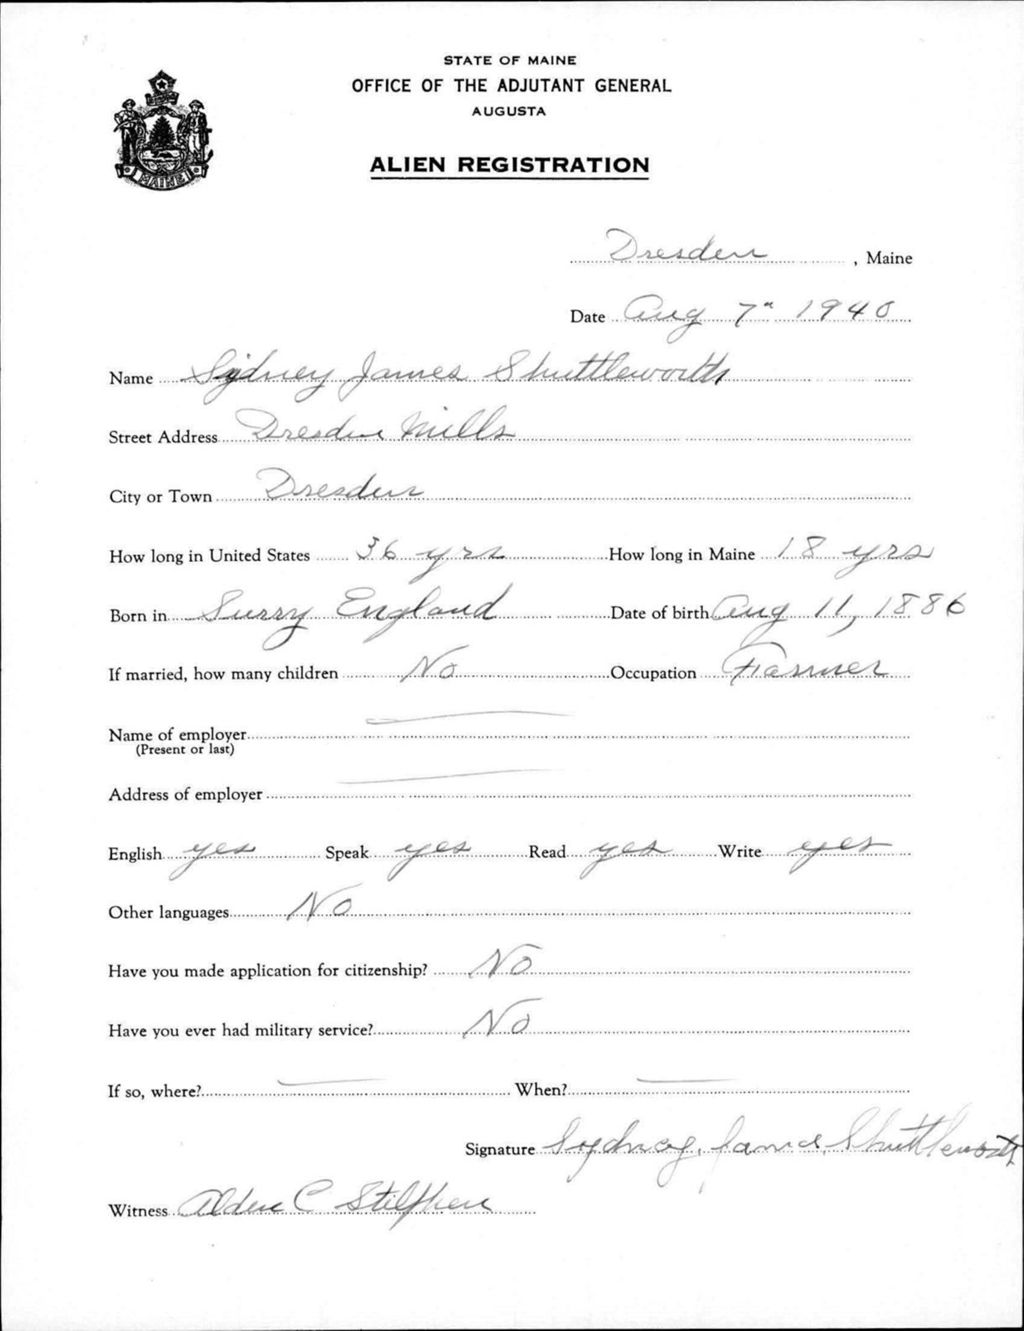 STATE OF MAINE
OFFICE OF THE ADJUTANT GENERAL
AUGUSTA
MAINE
ALIEN REGISTRATION
Dresden, Maine
Date Aug 7" 1940
Name Sydney James Shuttleworth
Street Address Dresden Mills
City or Town Dresden
How long in United States 36 yrs How long in Maine 18 yrs
Born in Surry England Date of birth Aug 11, 1886
If married, how many children No Occupation Farmer
Name of employer
(Present or last)
Address of employer
English yes Speak yes Read yes Write yes
Other languages No
Have you made application for citizenship? No
Have you ever had military service? No
If so, where? When?
Signature Sydney James Shuttleworth
Witness Alden C Stilphen